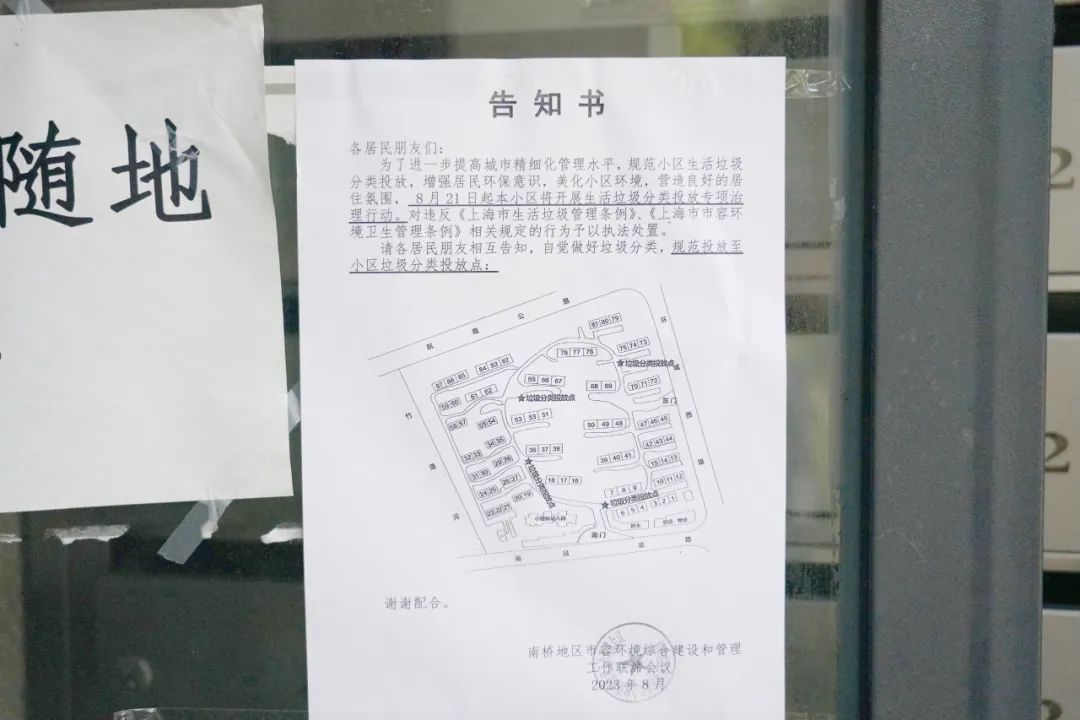 随地
告知书
各居民朋友们：
为了进一步提高城市精细化管理水平，规范小区生活垃圾
分类投放，增强居民环保意识，美化小区环境，营造良好的居
住氛围，8月21日起本小区将开展生活垃圾分类投放专项治
理行动。对违反《上海市生活垃圾管理条例》、《上海市市容环
境卫生管理条例》相关规定的行为予以执法处置。
请各居民朋友相互告知，自觉做好垃圾分类，规范投放至
小区垃圾分类投放点：
航南公路
环城西路
竹港河
运河北路
81 80 79
78 77 76
75 74 73
★垃圾分类投放点
87 86 85
84 83 82
65 66 67
68 69
70 71 72
59 60
61 62
★垃圾分类投放点
东门
52 53 51
50 49 48
47 46 45
42 43 44
36 37 38
39 40 41
15 14 13
★垃圾分类投放点
10 11 12
7 8 9
★垃圾分类投放点
6 5 4
3 2 1
南门
谢谢配合。
南桥地区市容环境综合建设和管理
工作联席会议
2023年8月
2
2